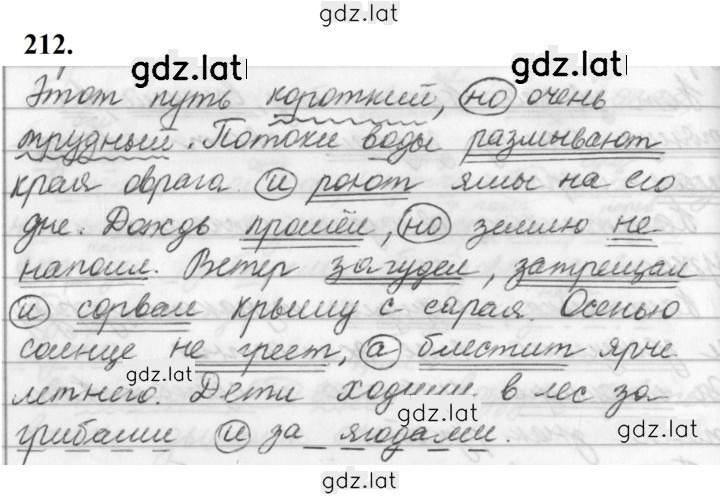 gdz.lat
212.
gdz.lat gdz.lat
Этот путь короткий, но очень
трудный. Потоки воды размывают
края оврага и роют ямы на его
дне. Дождь прошёл, но землю не
напоил. Ветер загудел, затрещал
и сорвал крышу с сарая. Осенью
солнце не греет, а блестит ярче
gdz.lat
летнего. Дети ходили в лес за
gdz.lat
грибами и за ягодами.
gdz.lat
gdz.lat